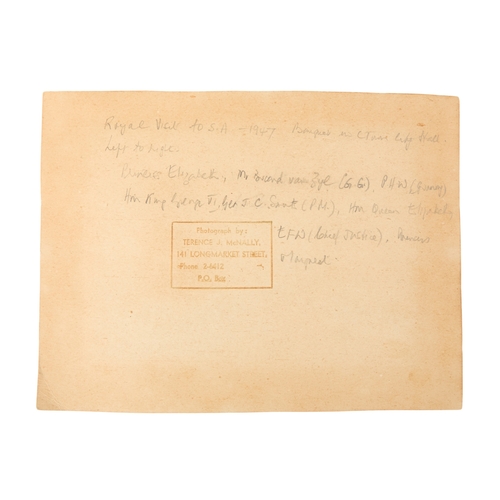 Royal Visit to S.A. - 1947 in C Town City Hall
Left to Right:
Princess Elizabeth, Mr Brand van Zyl (G.G.)
H.M. King George VI, Gen J.C. Smuts (P.M.), H.M. Queen Elizabeth
(Chief Justice), Princess
Margaret.
Photograph by:
TERENCE J. McNALLY,
141 LONGMARKET STREET,
Phone 2-6612
P.O. Box